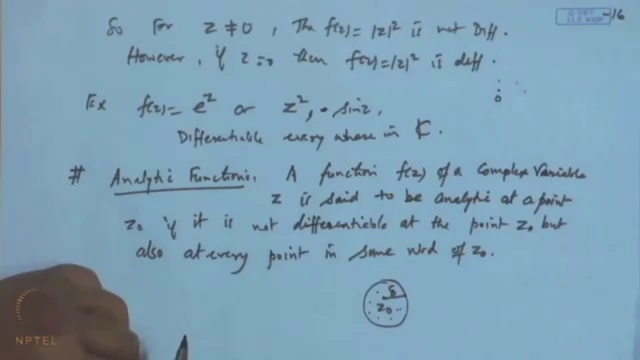 So For z ≠ 0, The f(z) = |z|² is not Diff.
However, if z = 0 then f(z) = |z|² is diff.
Ex f(z) = e^z or z², sin z,
Differentiable every where in ℂ.
# Analytic Function: A function f(z) of a complex variable
z is said to be analytic at a point
z₀ if it is not differentiable at the point z₀ but
also at every point in some nbd of z₀.
δ
z₀
NPTEL